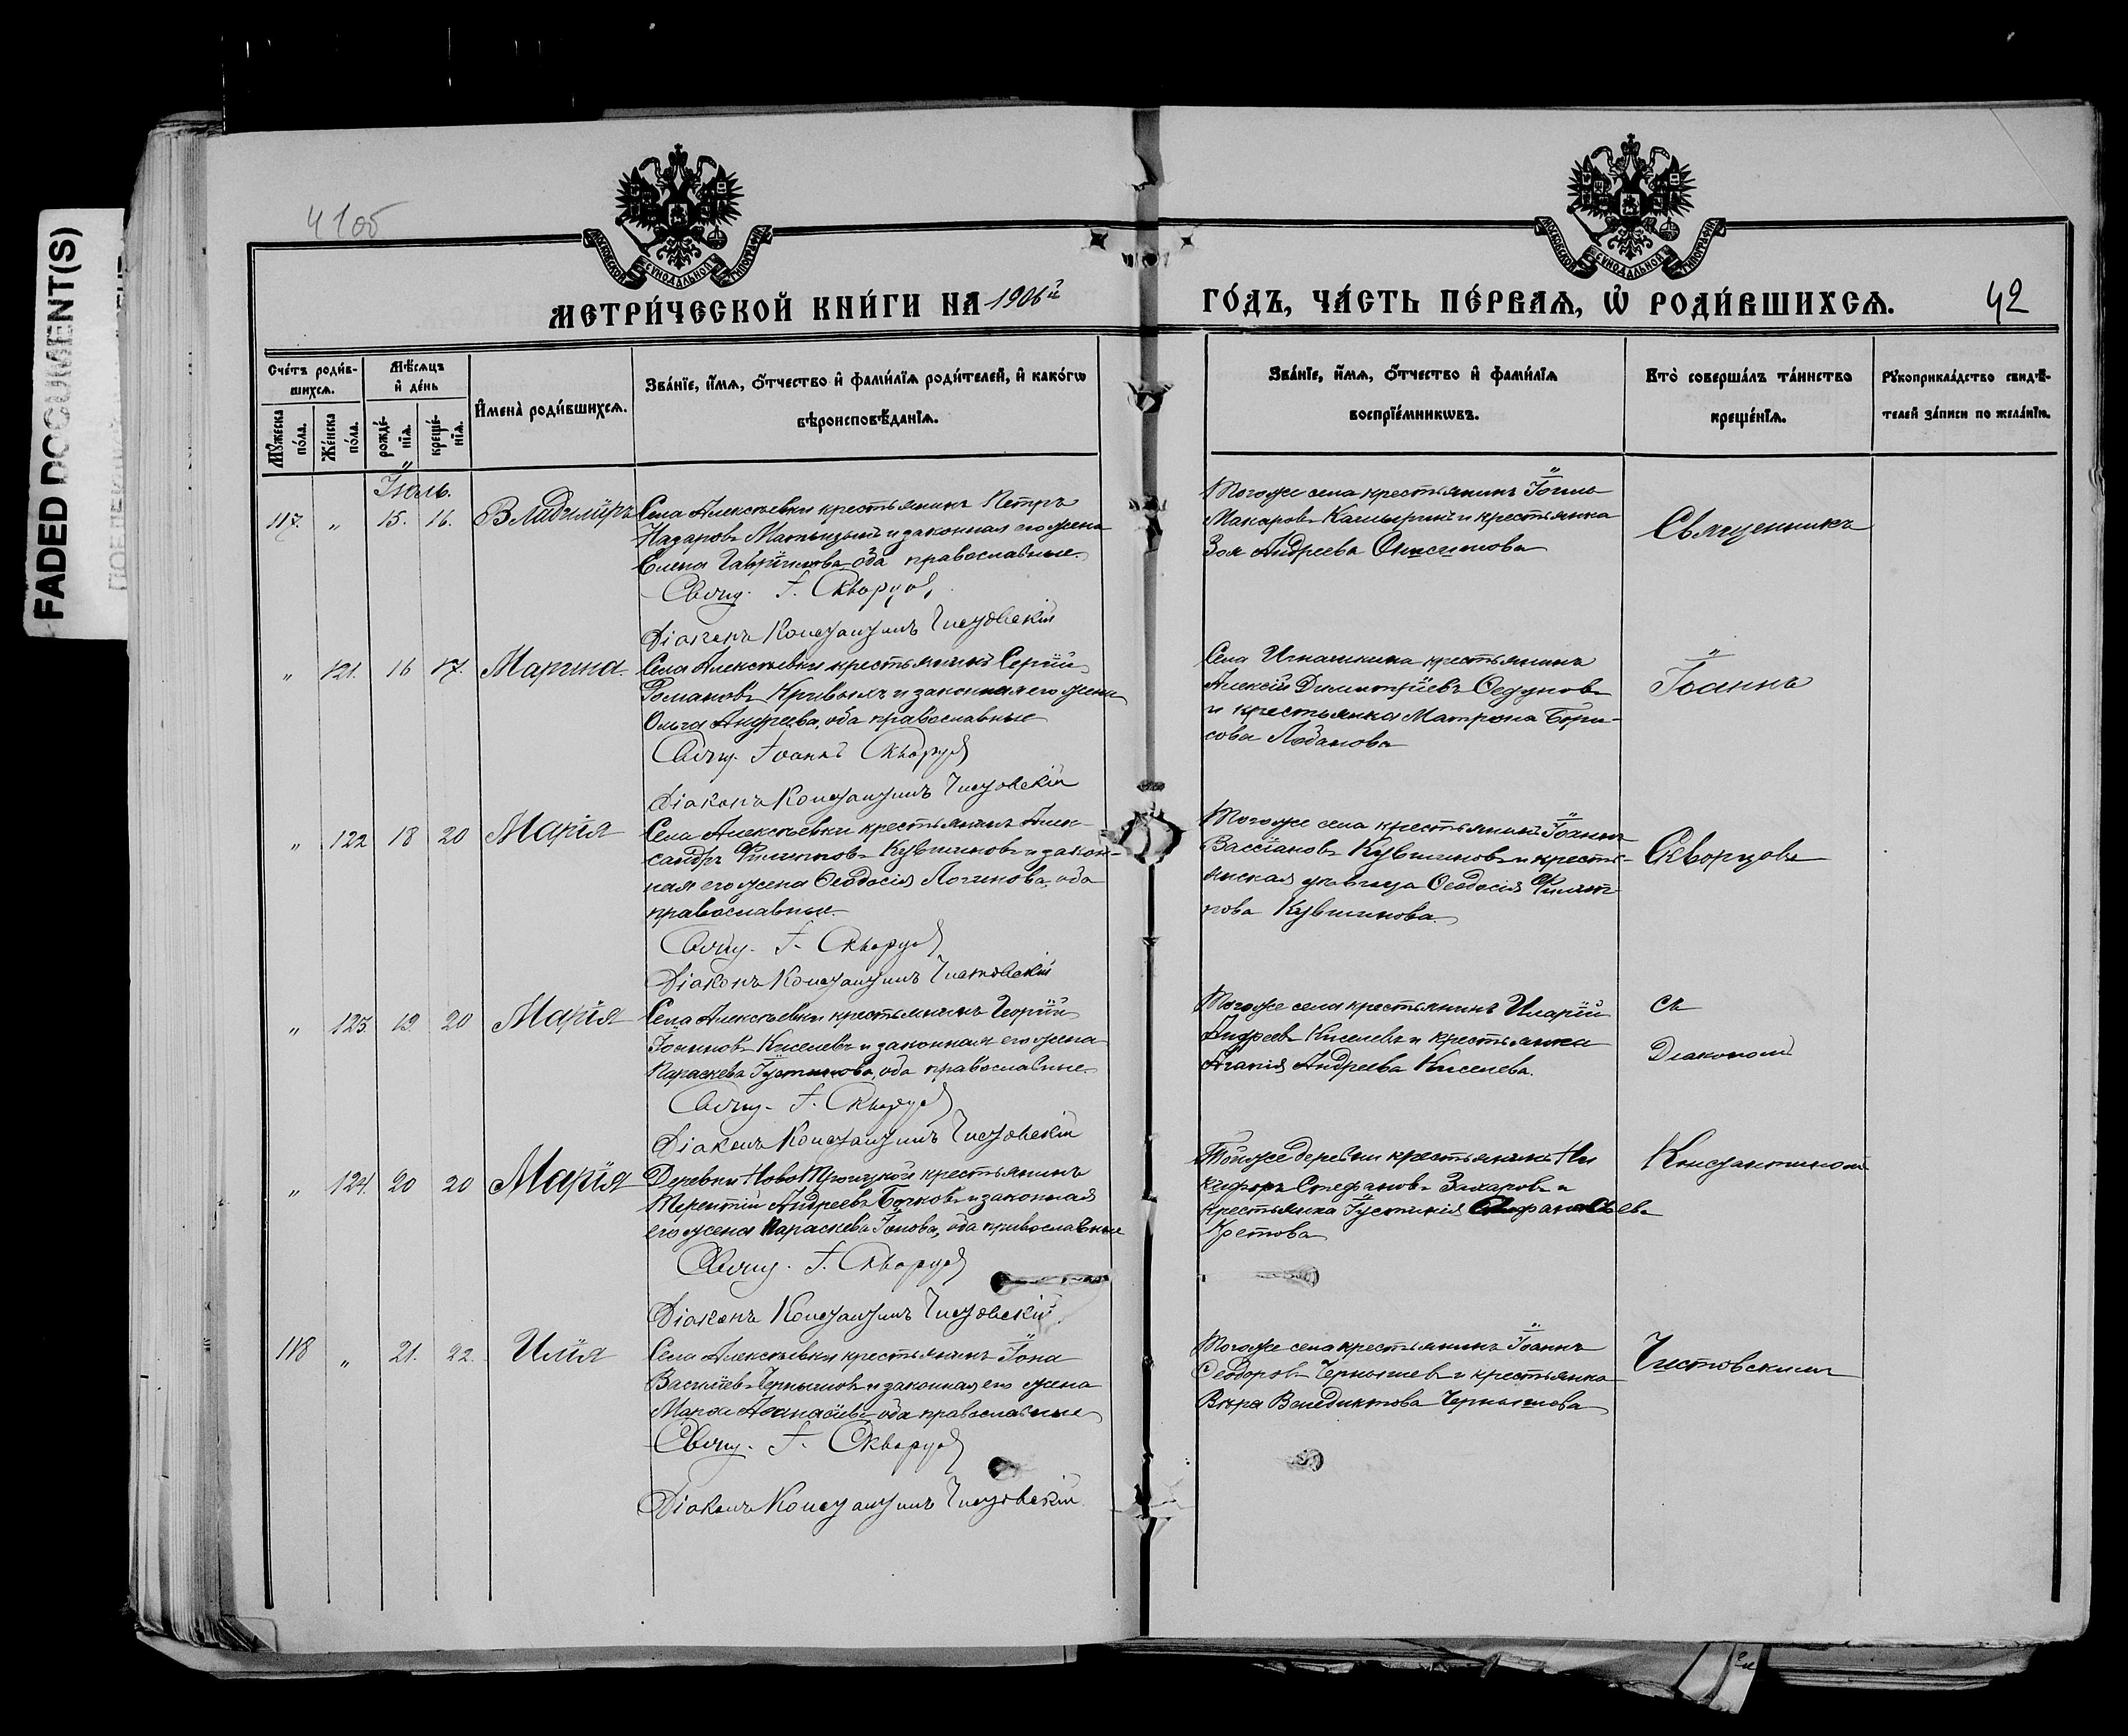 FADED DOCUMENT(S)
41об
МОСКОВСКОЙ СѴНОДАЛЬНОЙ ТИПОГРАФІИ
МОСКОВСКОЙ СѴНОДАЛЬНОЙ ТИПОГРАФІИ
МЕТРИ́ЧЕСКОЙ КНИ́ГИ НА 1906й ГО́ДЪ, ЧА́СТЬ ПЕ́РВАѦ, Ѡ҆ РОДИ́ВШИХСѦ.
42
Сче́тъ роди́в-
шихсѧ.
Мѣ́сѧцъ
и҆ де́нь
Мꙋ́жеска
по́ла.
Же́нска
по́ла.
рожде́-
нїѧ.
креще́-
нїѧ.
И҆мена̀ роди́вшихсѧ.
Зва́нїе, и҆́мѧ, ѻ҆́тчество и҆ фами́лїѧ роди́телей, и҆ како́гѡ
вѣроисповѣ́данїѧ.
Зва́нїе, и҆́мѧ, ѻ҆́тчество и҆ фами́лїѧ
воспрїе́мникѡвъ.
Кто̀ соверша́лъ та́инство
креще́нїѧ.
Рꙋкоприкла́дство свидѣ́-
телей за́писи по жела́нїю.
Іюль.
117. " 15. 16. Владимiръ
Села Алексѣевки крестьянинъ Петръ
Назаровъ и законная его жена
Елена Гавріилова, оба православные.
Свящ. І. Скворцов
Діаконъ Константинъ Чистовскій
Тогоже села крестьянинъ
Макаровъ и крестьянка
Зоя Андреева Онисимова
Священникъ
" 121. 16 17. Марина.
Села Алексѣевки крестьянинъ Сергій
Романовъ Кривыхъ и законная его жена
Ольга Андреева, оба православные
Свящ. Іоаннъ Скворцов
Діаконъ Константинъ Чистовскій
Села Игнашкина крестьянинъ
Алексій Димитріевъ Федуновъ
и крестьянка Матрона Бори-
сова Лобанова
Іоаннъ
" 122 18 20 Марія
Села Алексѣевки крестьянинъ Алек-
сандръ Филипповъ Кувшиновъ и закон-
ная его жена Ѳеодосія Логинова, оба
православные.
Свящ. І. Скворцов
Діаконъ Константинъ Чистовскій
Тогоже села крестьянинъ Іоаннъ
Вассіановъ Кувшиновъ и кресть-
янская дѣвица Ѳеодосія Филип-
пова Кувшинова.
Скворцовъ
" 123. 19. 20 Марія
Села Алексѣевки крестьянинъ Георгій
Іоанновъ Киселевъ и законная его жена
Параскева Іустинова, оба православные.
Свящ. І. Скворцов
Діаконъ Константинъ Чистовскій
Тогоже села крестьянинъ Иларій
Андреевъ Киселевъ и крестьянка
Агапія Андреева Киселева.
съ
Діакономъ
" 124. 20 20 Марія
Деревни НовоТроицкой крестьянинъ
Терентій Андреевъ и законная
его жена Параскева Іонова, оба православные
Свящ. І. Скворцов
Діаконъ Константинъ Чистовскій
Тойже деревни крестьянинъ Ни
кифоръ Стефановъ Захаровъ и
крестьянка Іустинія
Кретова
Константиномъ
118 " 21. 22. Илія
Села Алексѣевки крестьянинъ Іона
Василіевъ Чернышовъ и законная его жена
Марѳа Аѳанасіева, оба православные
Свящ. І. Скворцов
Діаконъ Константинъ Чистовскій
Тогоже села крестьянинъ Іоаннъ
Ѳеодоровъ Чернышевъ и крестьянка
Вѣра Венедиктова Чернышова
Чистовскимъ